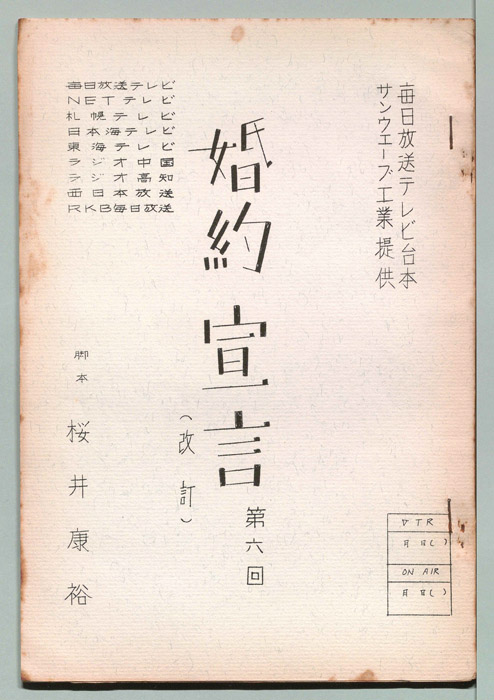 毎日放送テレビ台本
サンウエーブ工業提供
婚約宣言
第六回
(改訂)
毎日放送テレビ
NETテレビ
札幌テレビ
日本海テレビ
東海テレビ
ラジオ中国
ラジオ高知
西日本放送
RKB毎日放送
脚本 桜井康裕
VTR
月 日( )
ON AIR
月 日( )